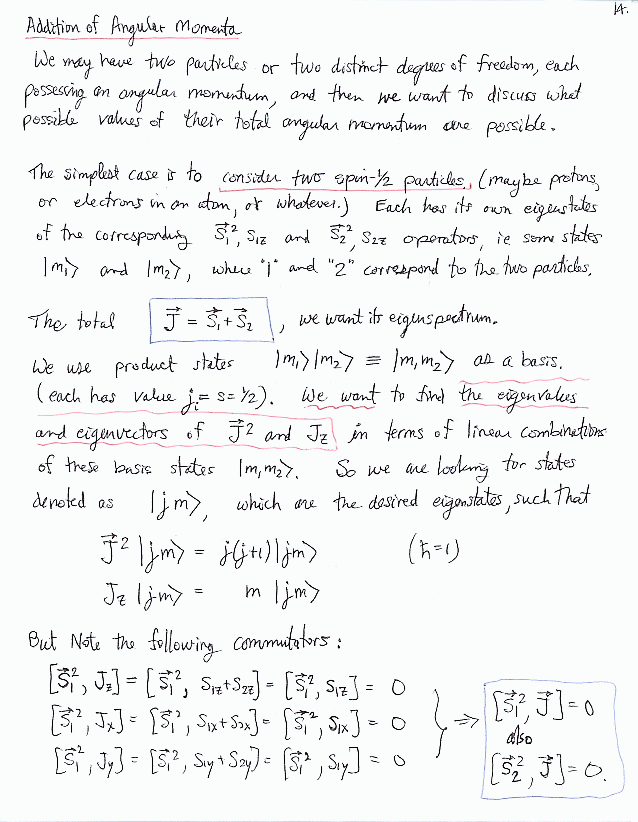 14.
Addition of Angular Momenta
We may have two particles or two distinct degrees of freedom, each
possessing an angular momentum, and then we want to discuss what
possible values of their total angular momentum are possible.
The simplest case is to consider two spin-1/2 particles, (maybe protons,
or electrons in an atom, or whatever.) Each has its own eigenstates
of the corresponding S⃗₁², S₁z and S⃗₂², S₂z operators, ie some states
|m₁⟩ and |m₂⟩, where "1" and "2" correspond to the two particles.
The total J⃗ = S⃗₁ + S⃗₂, we want its eigenspectrum.
We use product states |m₁⟩|m₂⟩ ≡ |m₁m₂⟩ as a basis.
(each has value jᵢ = s = 1/2). We want to find the eigenvalues
and eigenvectors of J⃗² and Jz in terms of linear combinations
of these basis states |m₁m₂⟩. So we are looking for states
denoted as |jm⟩, which are the desired eigenstates, such that
J⃗² |jm⟩ = j(j+1)|jm⟩ (ħ=1)
Jz |jm⟩ = m |jm⟩
But Note the following commutators:
[S⃗₁², Jz] = [S⃗₁², S₁z+S₂z] = [S⃗₁², S₁z] = 0
[S⃗₁², Jx] = [S⃗₁², S₁x+S₂x] = [S⃗₁², S₁x] = 0
[S⃗₁², Jy] = [S⃗₁², S₁y+S₂y] = [S⃗₁², S₁y] = 0
⇒ [S⃗₁², J⃗] = 0
also
[S⃗₂², J⃗] = 0.